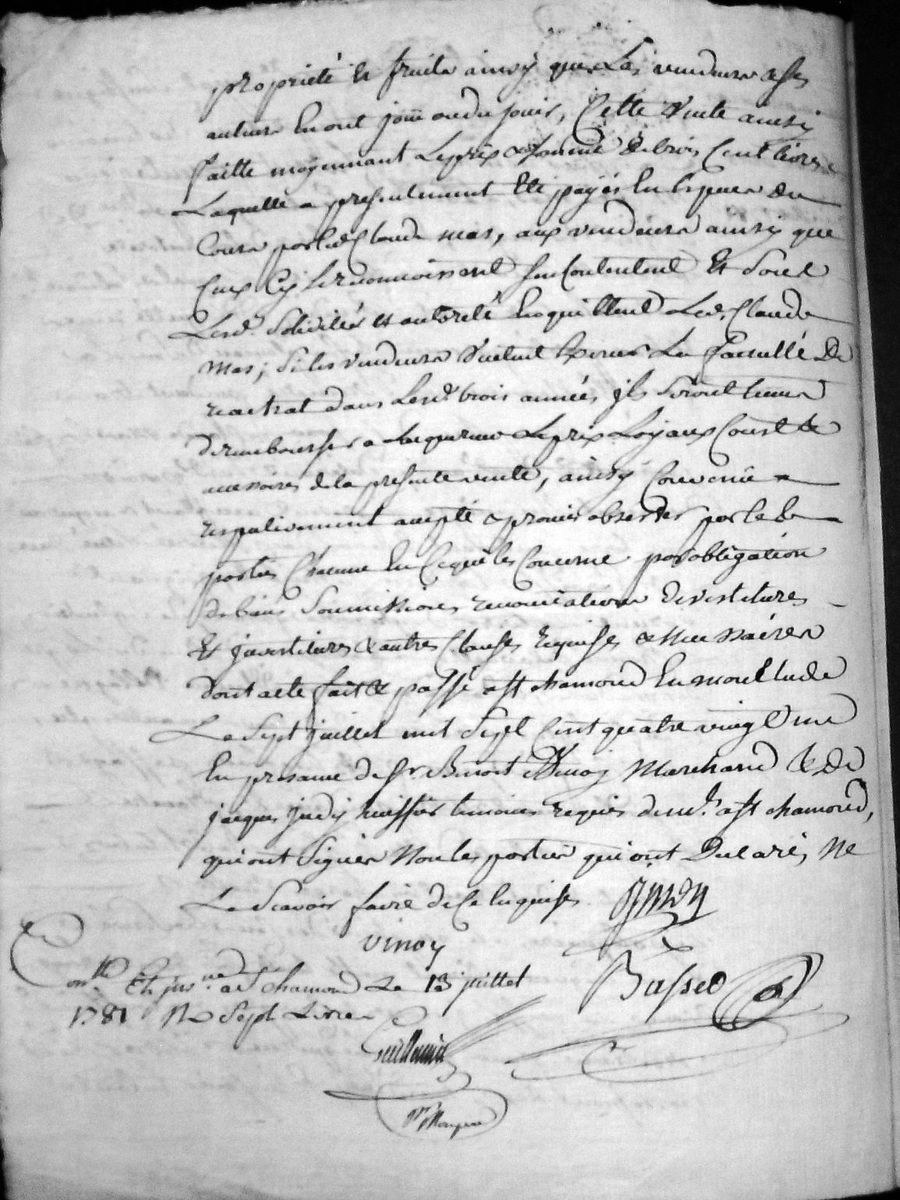 propriété et fruits ainsy que Les vendeurs et ses
auteurs En ont joüi ou dû jouir, Cette vente ainsy
faitte moyennant Le prix et somme de trois Cent livres
Laquelle a presentement été payée En Espèces de
Cours par led. Claude mas, aux vendeurs ainsy que
Ceux Cy Le reconnoissent s'en Contentent Et sous
Lesd. solidités et autorité En quittent Led. Claude
mas, si les vendeurs veulent Exercer La faculté De
reachat dans Lesd. trois années jls seront tenus
de rembourser a Lacquereur Le prix Loyaux Couts &
accessoires de la presente vente, ainsy Convenu
respectivement accepté et promis observer par les
parties Chacune En Ce qui les Concerne par obligation
de biens soumissions renonciations devestitures
Et jnvestitures & autres Clauses requises & necessaires
dont acte fait & passé a St chamond En mon Etude
Le sept juillet mil sept Cent quatre vingt un
En presence de sr. Benoit Vinoy Marchand & De
jacques judy huissier temoins requis dem.t a St chamond,
qui ont signés Non les parties qui ont Declarés Ne
Le Scavoir faire de Ce Enquises.
Vinoy
Con.lle Et jns.né a St chamond Le 13 juillet
1781 R. Sept Livres